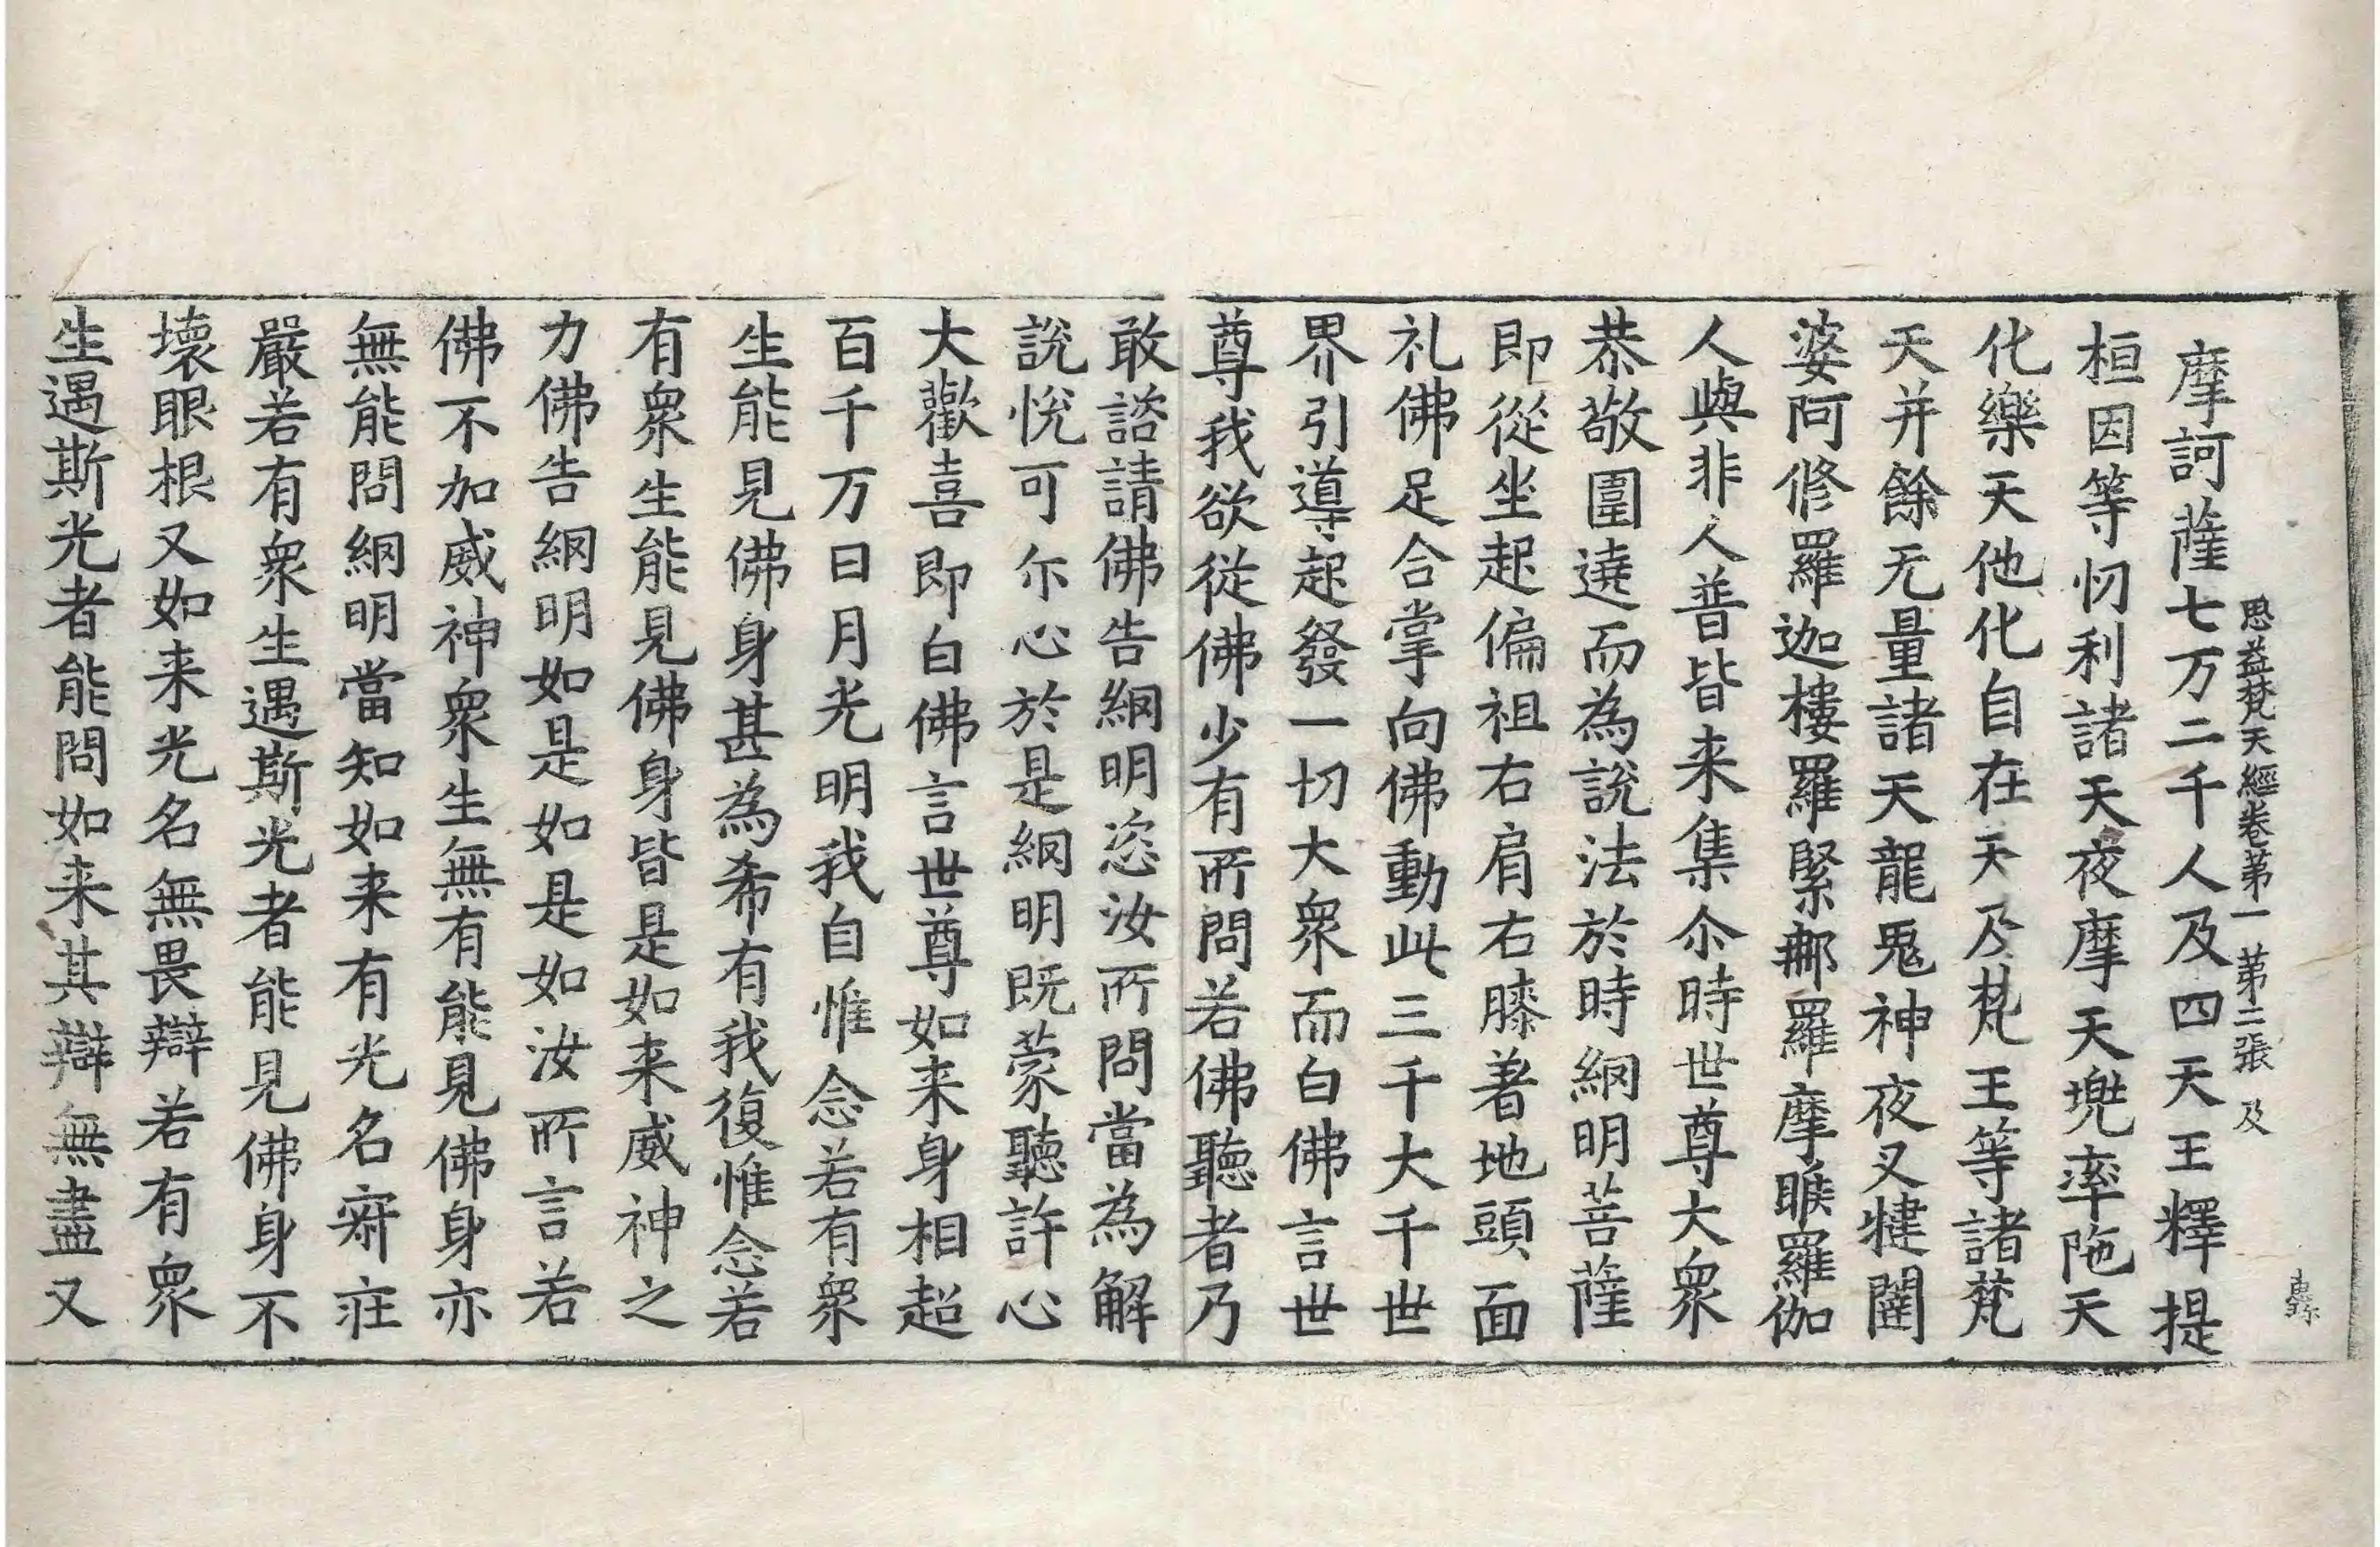 思益梵天經卷第一 第二張 及
摩訶薩七万二千人及四天王釋提
桓因等忉利諸天夜摩天兠率陁天
化樂天他化自在天及梵王等諸梵
天并餘无量諸天龍鬼神夜叉揵闥
婆阿修羅迦樓羅緊那羅摩睺羅伽
人與非人普皆来集尒時世尊大衆
恭敬圍遶而為說法於時網明菩薩
即從坐起偏袒右肩右膝著地頭面
礼佛足合掌向佛動此三千大千世
界引導起發一切大衆而白佛言世
尊我欲從佛少有所問若佛聽者乃
敢諮請佛告網明恣汝所問當為解
說悅可尒心於是網明既蒙聽許心
大歡喜即白佛言世尊如来身相超
百千万日月光明我自惟念若有衆
生能見佛身甚為希有我復惟念若
有衆生能見佛身皆是如来威神之
力佛告網明如是如是如汝所言若
佛不加威神衆生無有能見佛身亦
無能問網明當知如来有光名𡧯莊
嚴若有衆生遇斯光者能見佛身不
壞眼根又如来光名無畏辯若有衆
生遇斯光者能問如来其辯無盡又